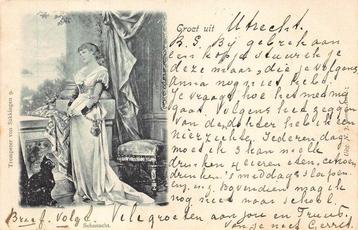 Groet uit Utrecht.
B.S. Bij gebrek aan
een kopje stuur ik je
deze maar, die je volgens
Anna nog niet hebt.
Je vraagt hoe het met mij
gaat. Volgens het zeggen
van de dokter heb ik een
nierziekte. Iederen dag
moet ik 3 kan melk
drinken 4 eieren
drinken, 's middags slapen,
enz. bovendien mag ik
nog niet naar school.
Vele groeten aan jou en Truus.
Gerrit
Brief volgt.
Sehnsucht.
Trompeter von Säkkingen 9.